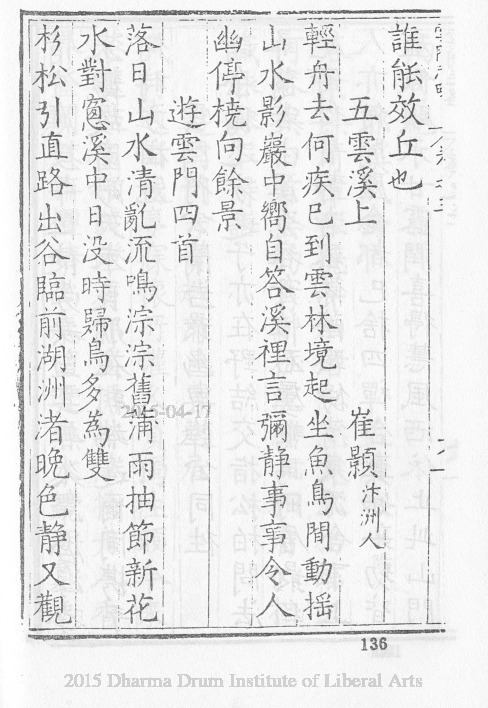 誰能效丘也
五雲溪上 崔顥 汴洲人
輕舟去何疾已到雲林境起坐魚鳥間動揺
山水影巖中嚮自答溪裡言彌静事事令人
幽停橈向餘景
遊雲門四首
落日山水清亂流鳴淙淙舊蒲雨抽節新花
水對窻溪中日没時歸鳥多為雙
杉松引直路出谷臨前湖洲渚晚色静又觀
2015-04-17
136
2015 Dharma Drum Institute of Liberal Arts